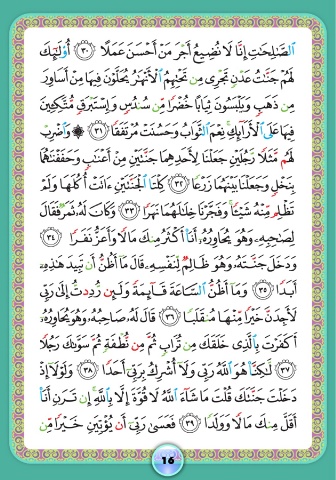 الصَّـٰلِحَـٰتِ إِنَّا لَا نُضِيعُ أَجْرَ مَنْ أَحْسَنَ عَمَلًا ٣٠ أُو۟لَـٰٓئِكَ
لَهُمْ جَنَّـٰتُ عَدْنٍ تَجْرِى مِن تَحْتِهِمُ ٱلْأَنْهَـٰرُ يُحَلَّوْنَ فِيهَا مِنْ أَسَاوِرَ
مِن ذَهَبٍ وَيَلْبَسُونَ ثِيَابًا خُضْرًا مِّن سُندُسٍ وَإِسْتَبْرَقٍ مُّتَّكِـِٔينَ
فِيهَا عَلَى ٱلْأَرَآئِكِ نِعْمَ ٱلثَّوَابُ وَحَسُنَتْ مُرْتَفَقًا ٣١ ۞ وَٱضْرِبْ
لَهُم مَّثَلًا رَّجُلَيْنِ جَعَلْنَا لِأَحَدِهِمَا جَنَّتَيْنِ مِنْ أَعْنَـٰبٍ وَحَفَفْنَـٰهُمَا
بِنَخْلٍ وَجَعَلْنَا بَيْنَهُمَا زَرْعًا ٣٢ كِلْتَا ٱلْجَنَّتَيْنِ ءَاتَتْ أُكُلَهَا وَلَمْ
تَظْلِم مِّنْهُ شَيْـًٔا وَفَجَّرْنَا خِلَـٰلَهُمَا نَهَرًا ٣٣ وَكَانَ لَهُۥ ثَمَرٌ فَقَالَ
لِصَـٰحِبِهِۦ وَهُوَ يُحَاوِرُهُۥٓ أَنَا۠ أَكْثَرُ مِنكَ مَالًا وَأَعَزُّ نَفَرًا ٣٤
وَدَخَلَ جَنَّتَهُۥ وَهُوَ ظَالِمٌ لِّنَفْسِهِۦ قَالَ مَآ أَظُنُّ أَن تَبِيدَ هَـٰذِهِۦٓ
أَبَدًا ٣٥ وَمَآ أَظُنُّ ٱلسَّاعَةَ قَآئِمَةً وَلَئِن رُّدِدتُّ إِلَىٰ رَبِّى
لَأَجِدَنَّ خَيْرًا مِّنْهَا مُنقَلَبًا ٣٦ قَالَ لَهُۥ صَاحِبُهُۥ وَهُوَ يُحَاوِرُهُۥٓ
أَكَفَرْتَ بِٱلَّذِى خَلَقَكَ مِن تُرَابٍ ثُمَّ مِن نُّطْفَةٍ ثُمَّ سَوَّىٰكَ رَجُلًا
٣٧ لَّـٰكِنَّا۠ هُوَ ٱللَّهُ رَبِّى وَلَآ أُشْرِكُ بِرَبِّىٓ أَحَدًا ٣٨ وَلَوْلَآ إِذْ
دَخَلْتَ جَنَّتَكَ قُلْتَ مَا شَآءَ ٱللَّهُ لَا قُوَّةَ إِلَّا بِٱللَّهِ إِن تَرَنِ أَنَا۠
أَقَلَّ مِنكَ مَالًا وَوَلَدًا ٣٩ فَعَسَىٰ رَبِّىٓ أَن يُؤْتِيَنِ خَيْرًا مِّن
16